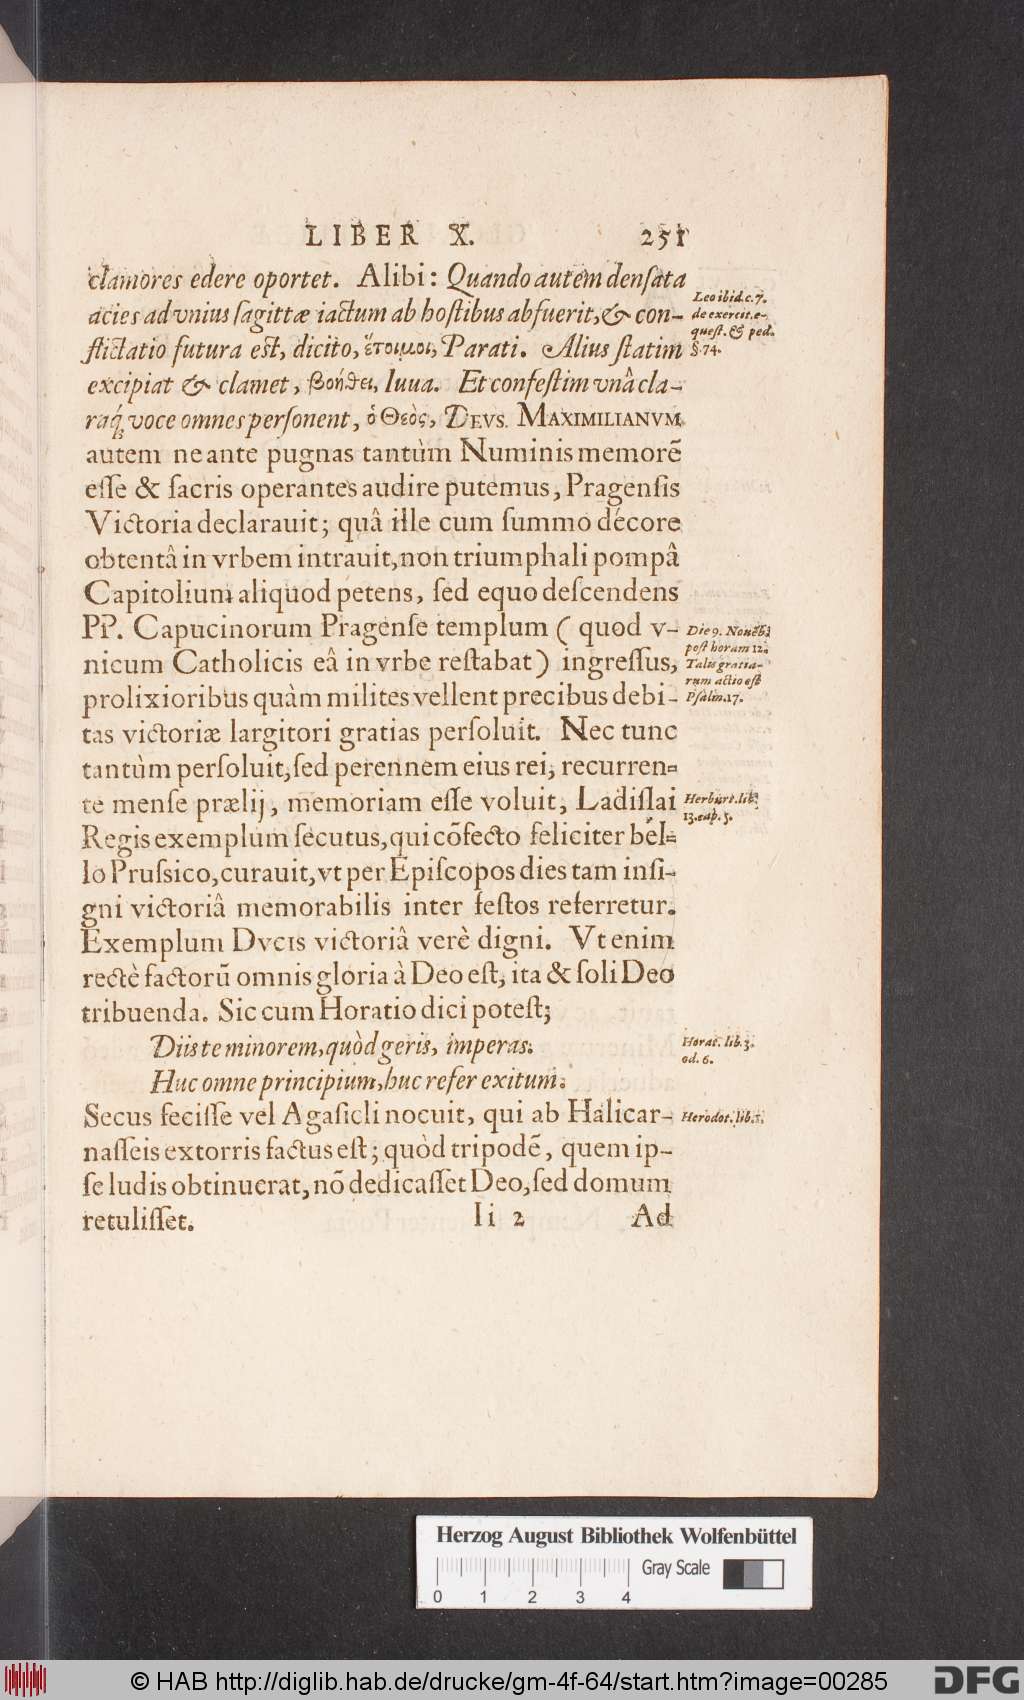 LIBER X. 251
clamores edere oportet. Alibi: Quando autem densata
acies ad vnius sagittæ iactum ab hostibus abfuerit, & con-
flictatio futura est, dicito, ἕτοιμοι, Parati. Alius statim
excipiat & clamet, βοήθει, Iuua. Et confestim vnâ cla-
raq́; voce omnes personent, ὁ Θεὸς, DEVS. MAXIMILIANVM
autem ne ante pugnas tantùm Numinis memorẽ
esse & sacris operantes audire putemus, Pragensis
Victoria declarauit; quâ ille cum summo décore
obtentâ in vrbem intrauit, non triumphali pompâ
Capitolium aliquod petens, sed equo descendens
PP. Capucinorum Pragense templum ( quod v-
nicum Catholicis eâ in vrbe restabat) ingressus,
prolixioribus quàm milites vellent precibus debi-
tas victoriæ largitori gratias persoluit. Nec tunc
tantùm persoluit, sed perennem eius rei, recurren-
te mense prælij, memoriam esse voluit, Ladislai
Regis exemplum secutus, qui cõfecto feliciter bel-
lo Prussico, curauit, vt per Episcopos dies tam insi-
gni victoriâ memorabilis inter festos referretur.
Exemplum DVCIS victoriâ verè digni. Vt enim
rectè factorũ omnis gloria à Deo est, ita & soli Deo
tribuenda. Sic cum Horatio dici potest;
Diis te minorem, quòd geris, imperas.
Huc omne principium, huc refer exitum.
Secus fecisse vel Agasicli nocuit, qui ab Halicar-
nasseis extorris factus est; quòd tripodẽ, quem ip-
se ludis obtinuerat, nõ dedicasset Deo, sed domum
retulisset.
Ii 2 Ad
Leo ibid. c. 7.
de exercit. e-
quest. & ped.
§. 74.
Die 9. Nouẽb.
post horam 12.
Talis gratia-
rum actio est
Psalm. 17.
Herburt. lib.
13. cap. 5.
Horat. lib. 3.
od. 6.
Herodot. lib. 1.
Herzog August Bibliothek Wolfenbüttel
Gray Scale
0 1 2 3 4
© HAB http://diglib.hab.de/drucke/gm-4f-64/start.htm?image=00285
DFG